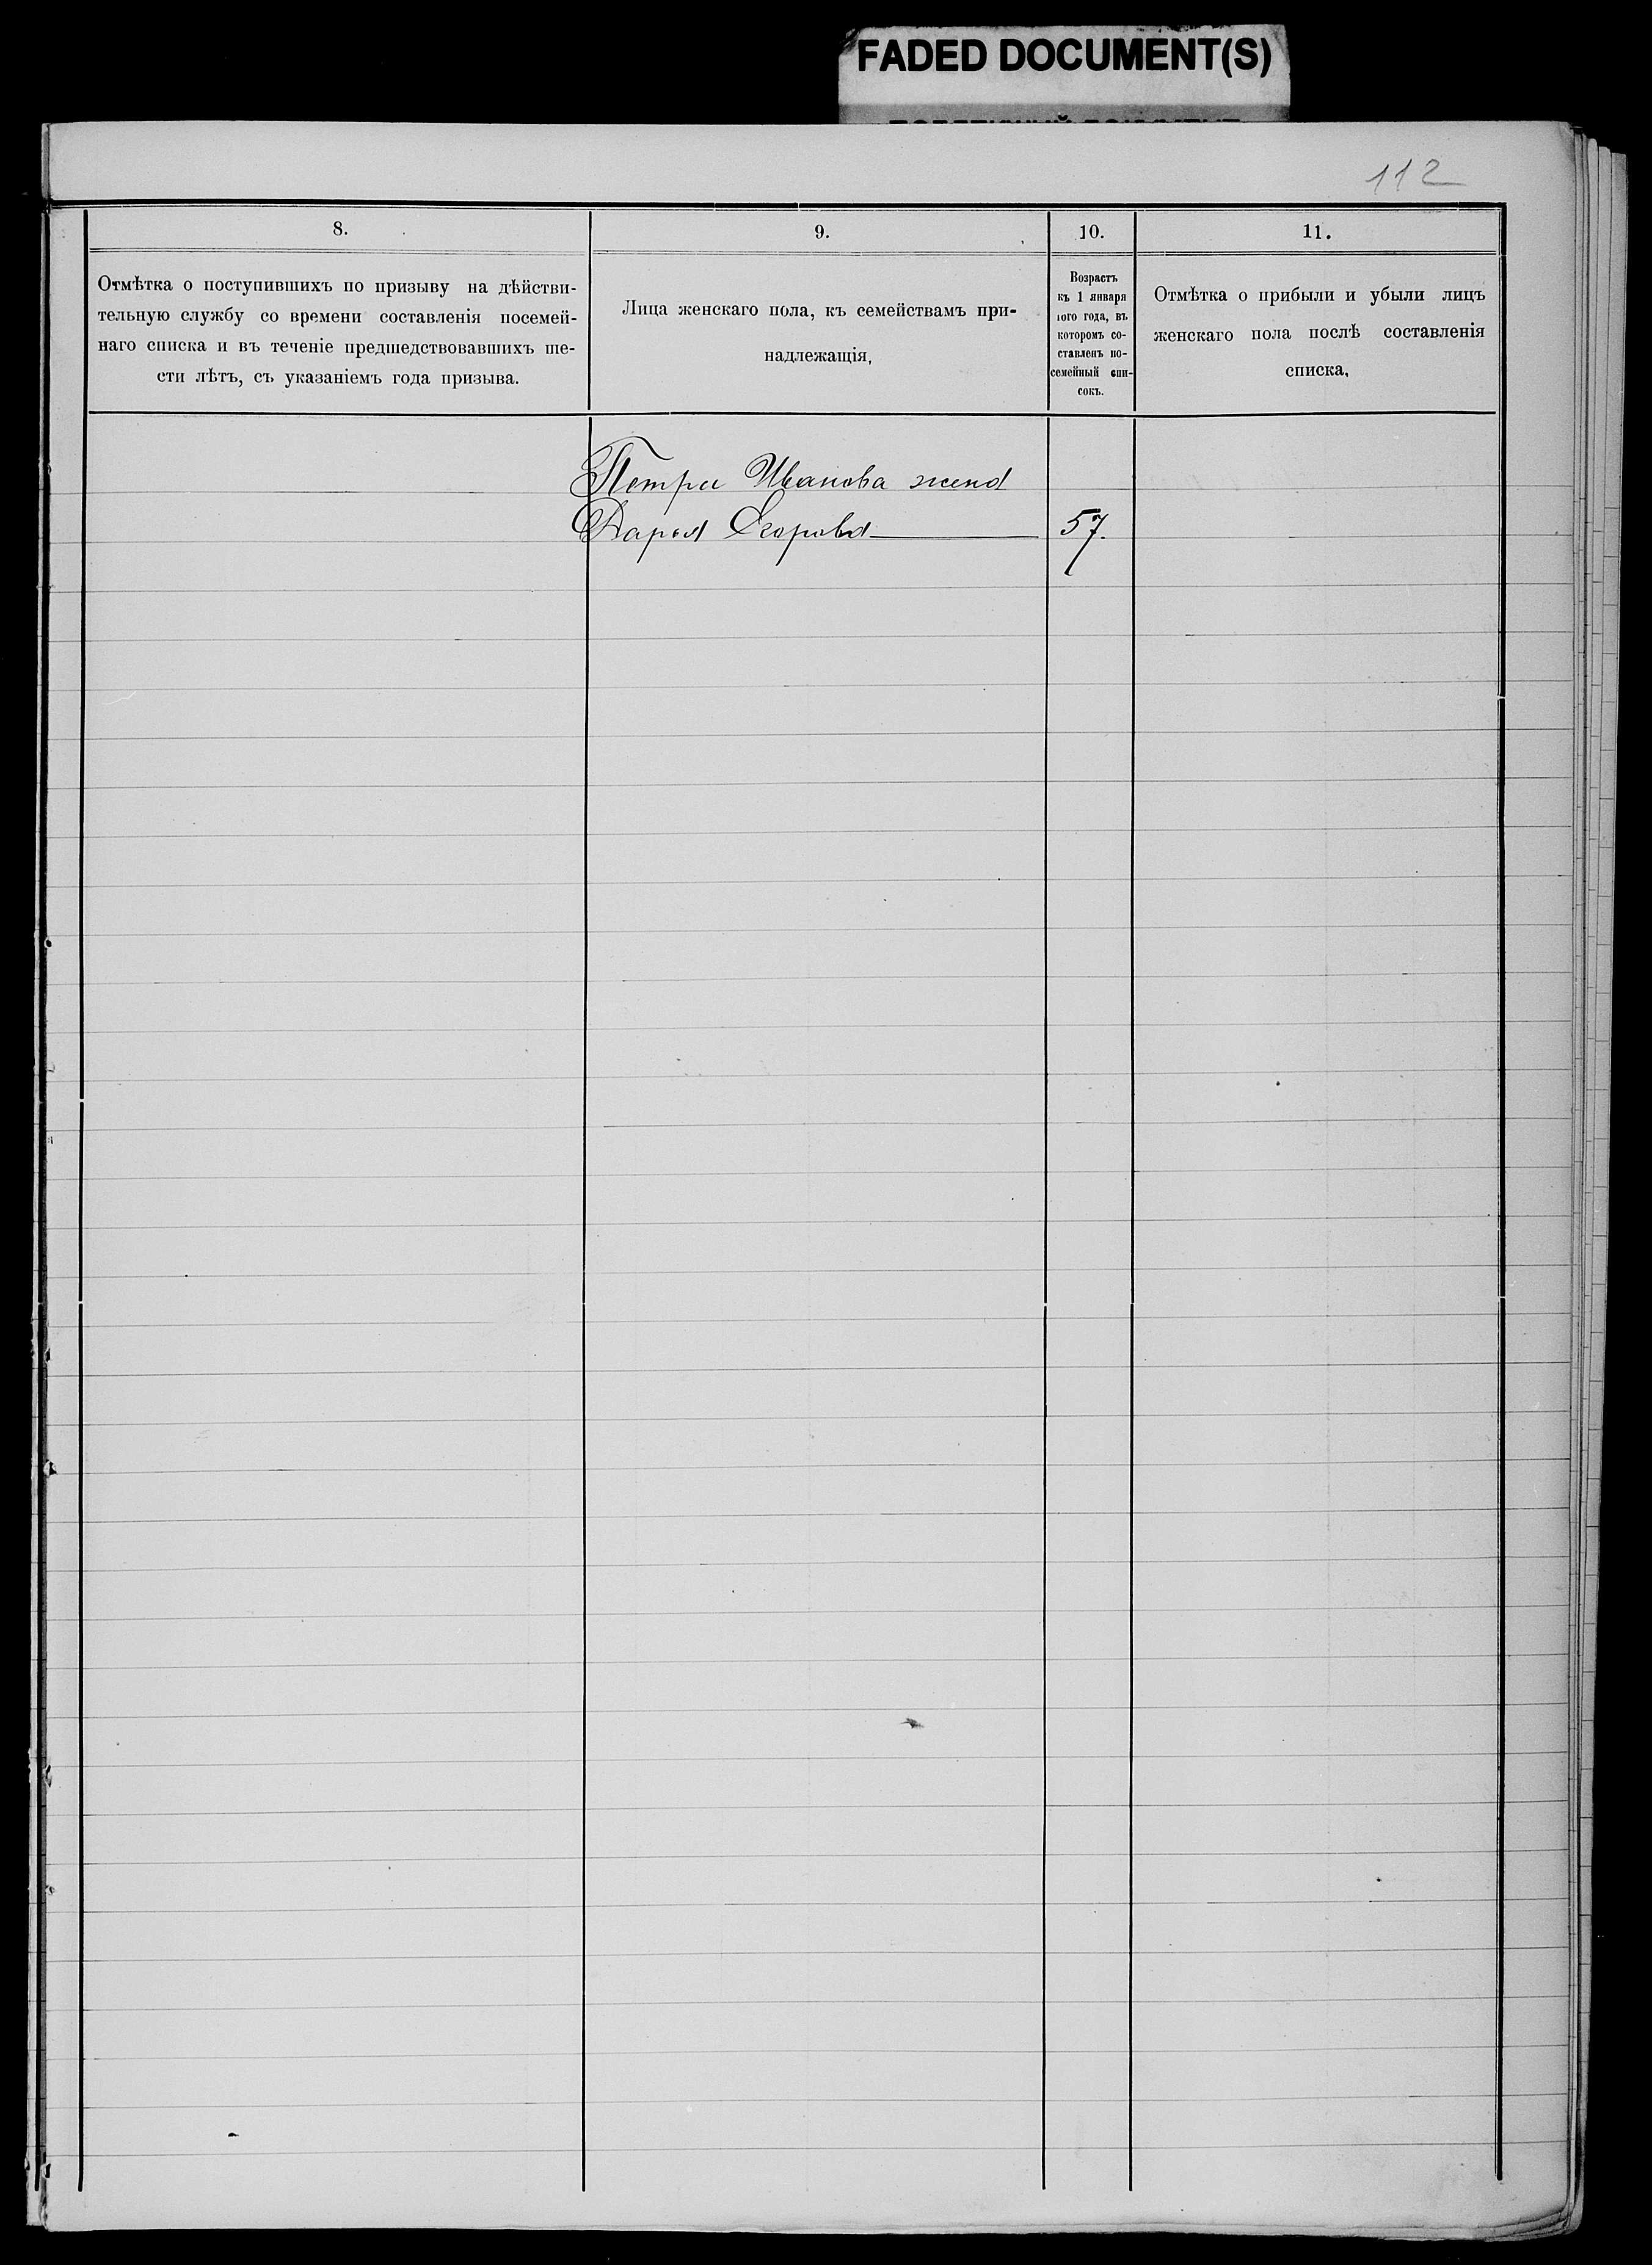 FADED DOCUMENT(S)
112
8.
9.
10.
11.
Отмѣтка о поступившихъ по призыву на дѣйстви-
тельную службу со времени составленія посемей-
наго списка и въ теченіе предшедствовавшихъ ше-
сти лѣтъ, съ указаніемъ года призыва.
Лица женскаго пола, къ семействамъ при-
надлежащія,
Возрастъ
къ 1 января
того года, въ
которомъ со-
ставленъ по-
семейный спи-
сокъ.
Отмѣтка о прибыли и убыли лицъ
женскаго пола послѣ составленія
списка,
Петра Иванова жена
Дарья Егорова 57.